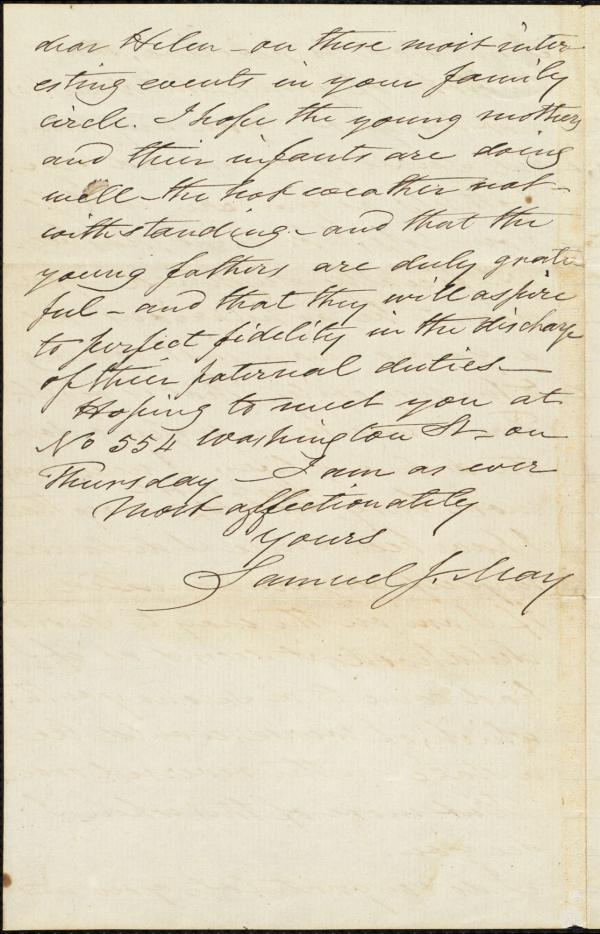 dear Helen – on these most inter
esting events in your family
circle. I hope the young mothers
and their infants are doing
well – the hot weather not-
withstanding – and that the
young fathers are duly grate
ful – and that they will aspire
to perfect fidelity in the discharge
of their paternal duties –
Hoping to meet you at
No 554 Washington St – on
Thursday – I am as ever
Most affectionately
Yours
Samuel J. May